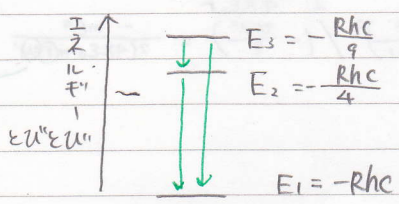 エネルギー
とびとび
~
E₃ = -Rhc/9
E₂ = -Rhc/4
E₁ = -Rhc